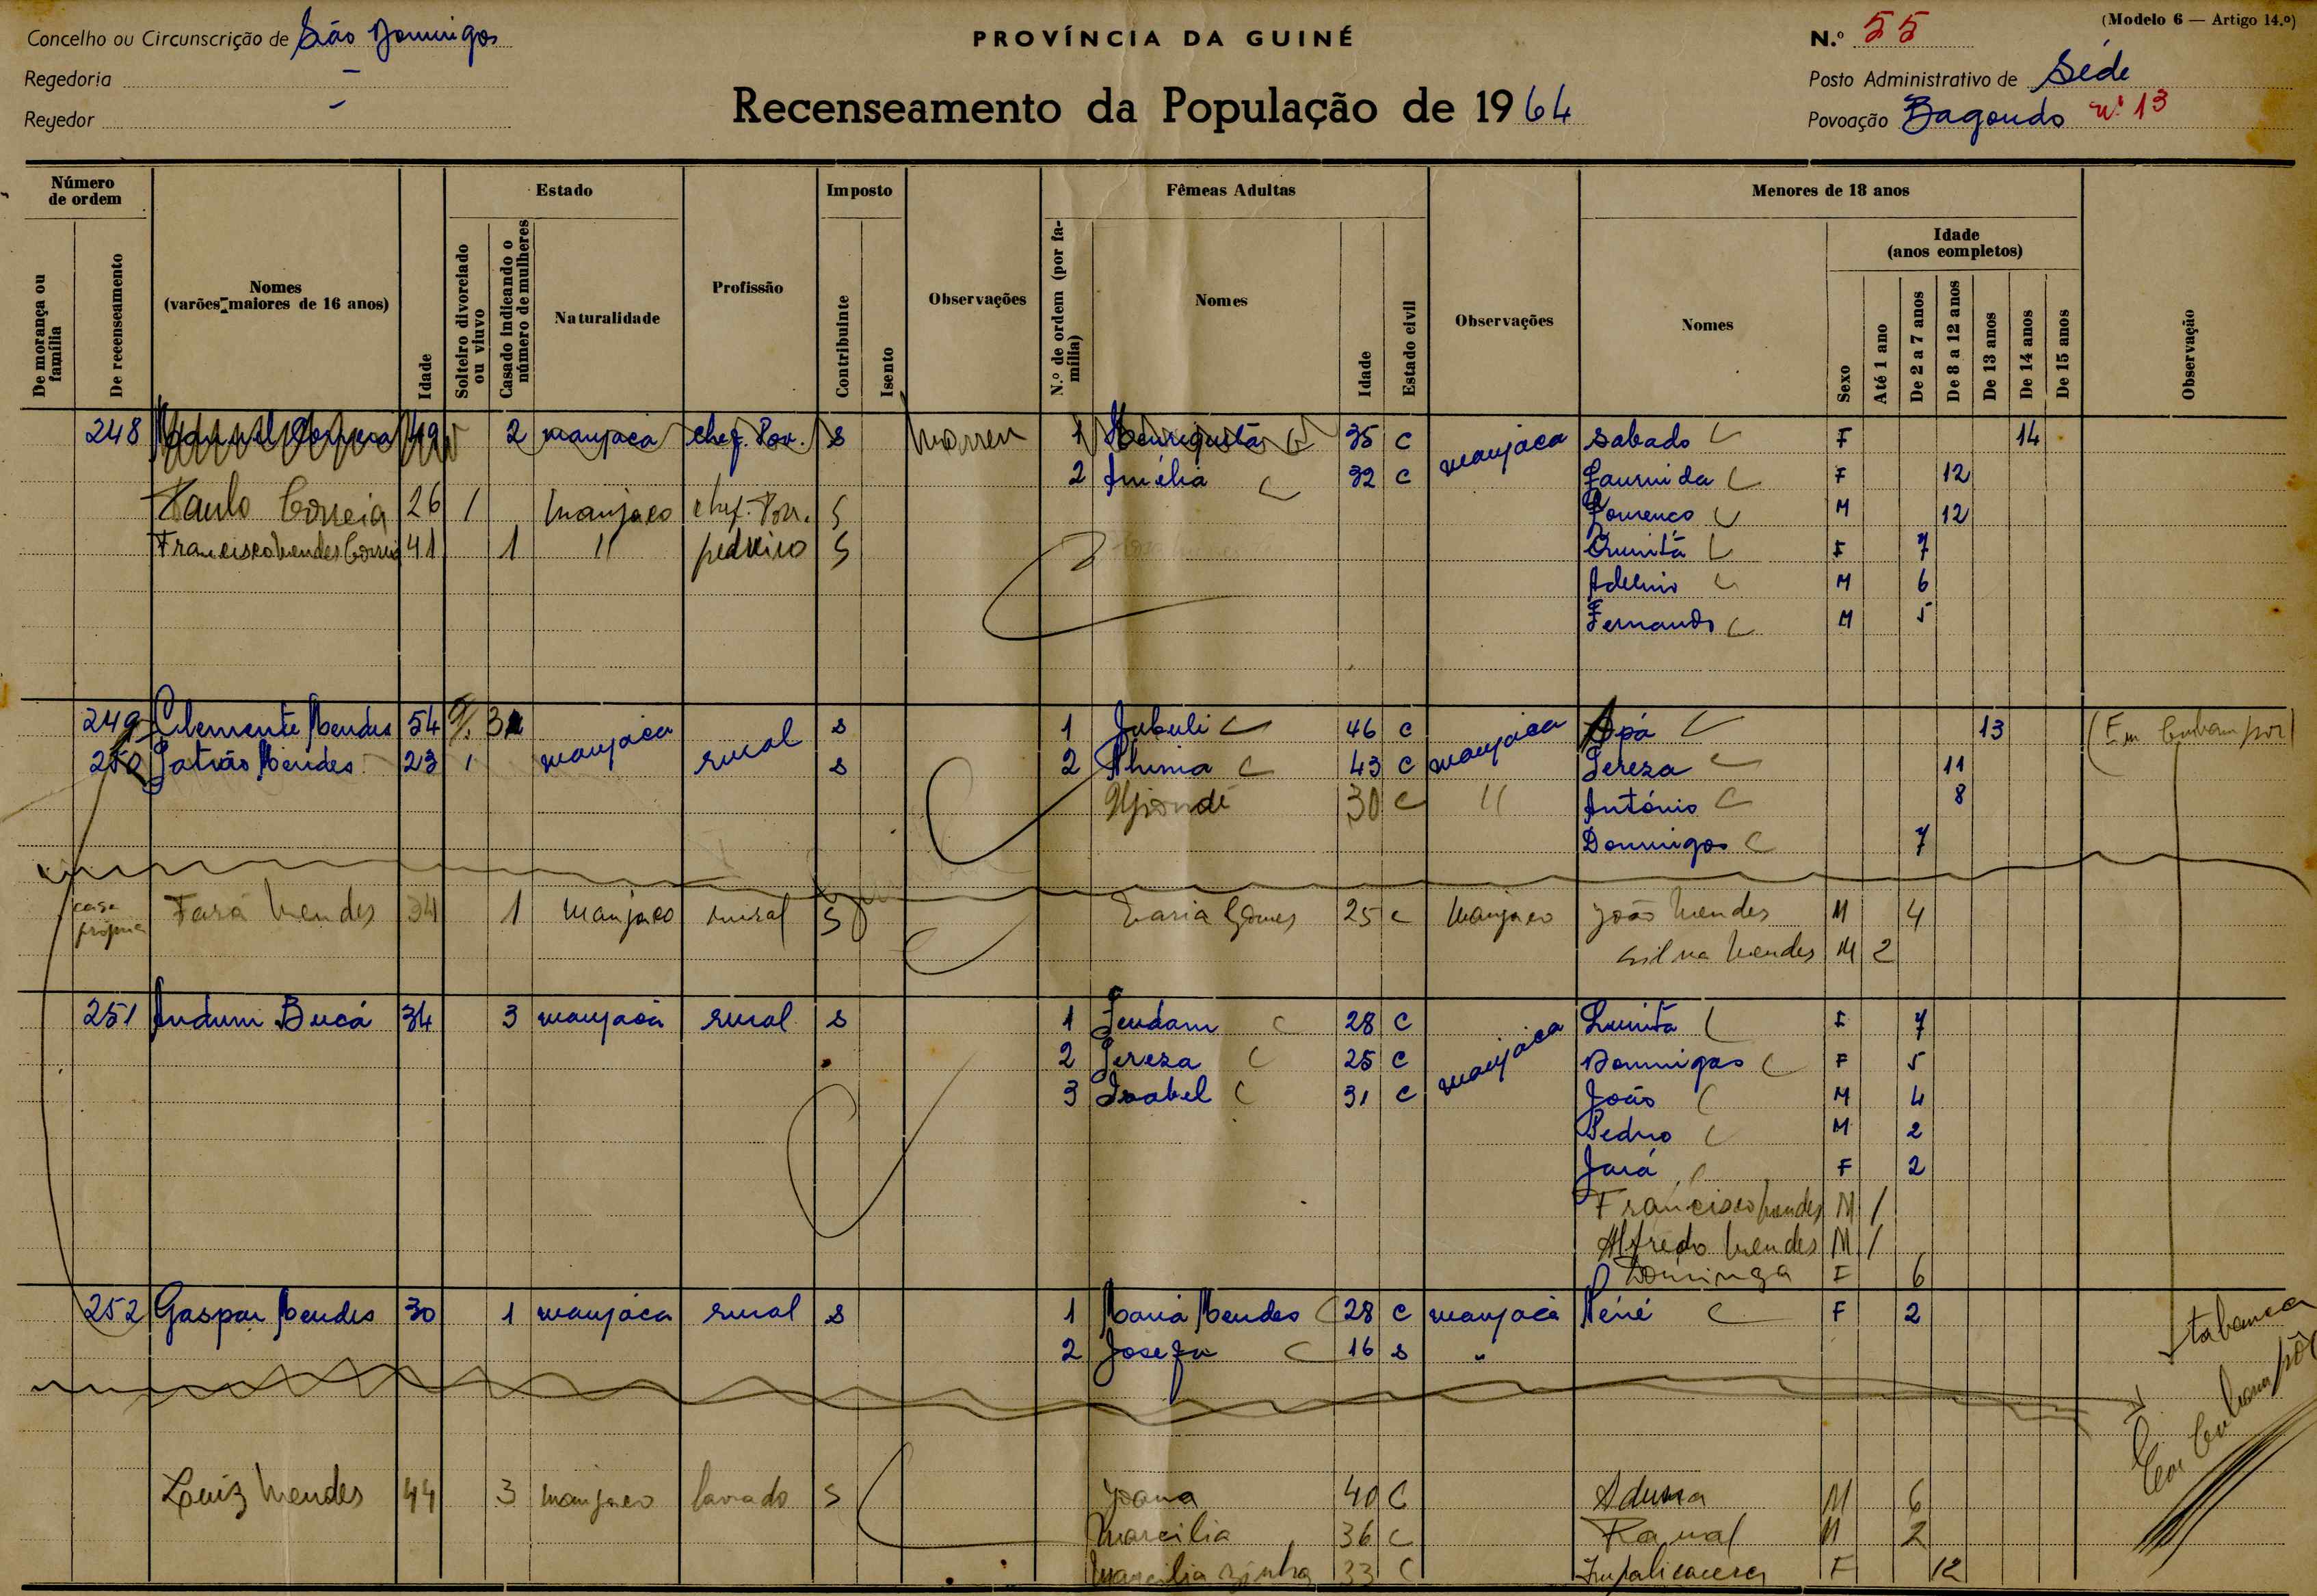 (Modelo 6 — Artigo 14.º)
Concelho ou Circunscrição de São Domingos
PROVÍNCIA DA GUINÉ
N.º 55
Regedoria –
Posto Administrativo de Séde
Regedor –
Recenseamento da População de 1964
Povoação Bagoudo nº 13
Número de ordem
Estado
Imposto
Fêmeas Adultas
Menores de 18 anos
De morança ou família
De recenseamento
Nomes (varões maiores de 16 anos)
Idade
Solteiro divorciado ou viuvo
Casado indicando o número de mulheres
Naturalidade
Profissão
Contribuinte
Isento
Observações
N.º de ordem (por família)
Nomes
Idade
Estado civil
Observações
Nomes
Sexo
Idade (anos completos)
Até 1 ano
De 2 a 7 anos
De 8 a 12 anos
De 13 anos
De 14 anos
De 15 anos
Observação
248 Manuel Correia 49 2 manjaca chef. Pov. s morreu 1 Henriqueta 35 c manjaca Sabado F 14
2 Amélia 32 c F 12
Paulo Correia 26 1 manjaco chef. Pov. S Lourenço M 12
Francisco Mendes Correia 41 1 " pedreiro S Quinta F 7
Adelino M 6
Fernando M 5
249 Clemente Mendes 54 3 manjaca rural s 1 Jubuli 46 c manjaca Apá 13
250 Patrão Mendes 23 1 s 2 43 c Tereza 11
30 c " António 8
Domingos 7
casa própria Fará Mendes 34 1 manjaco rural S Maria Gomes 25 c manjaco João Mendes M 4
Silva Mendes M 2
251 Andum Bucá 34 3 manjaca rural s 1 Fendam 28 c manjaca Lunita F 7
2 Tereza 25 c Domingas F 5
3 Isabel 31 c João M 4
Pedro M 2
Jará F 2
Francisco Mendes M 1
Alfredo Mendes M 1
Dominga F 6
252 Gaspar Mendes 30 1 manjaca rural s 1 Maria Mendes 28 c manjaca Néné F 2
2 Josefa 16 s "
tabanca
Luiz Mendes 44 3 manjaco lavrado S Joana 40 C M 6
Marcilia 36 c Ramal M 2
Marcilia zinha 33 C F 12